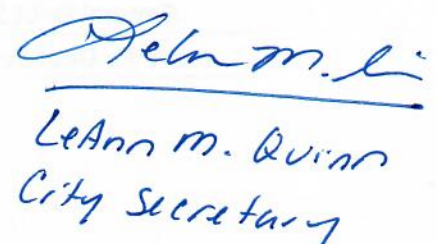 LeAnn M. Quinn
City Secretary